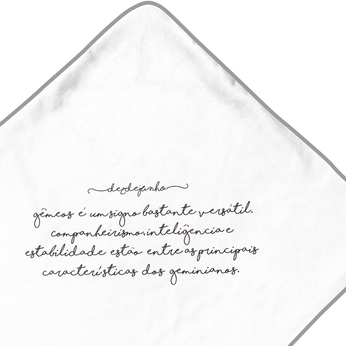 dedejanho
gêmeos é um signo bastante versátil.
companheirismo, inteligência e
estabilidade estão entre as principais
características dos geminianos.